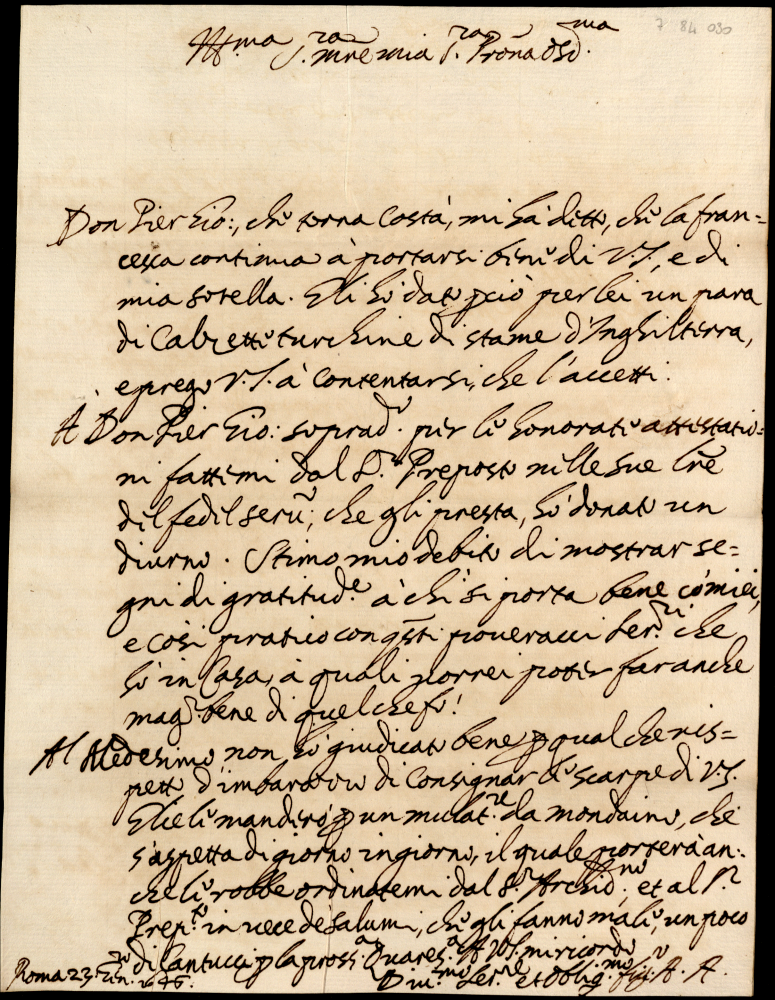 7 84 030
Ill.ma S.ra mrẽ mia S.ra Prõna oss.ma
Don Pier Gio:, che torna costà, mi hà ditto, che la fran=
cesca continua à portarsi bene di V.S., e di
mia sorella. Gli hò dato pciò per lei un para
di Calzette turchine di stame d'Inghilterra,
e prego V.S. à contentarsi, che l'accetti.
A Don Pier Gio: soprad.o per le honorate attestatio=
ni fattemi dal S.r Preposto nelle sue lrẽ
del fedel serũ, che gli presta, hò donato un
diurno. Stimo mio debito di mostrar se=
gni di gratitud.e à chi si porta bene co' miei,
e così pratico con q̃sti poveracci Ser.ri che
hò in Casa, à quali vorrei poter far anche
mag.r bene di quel che fò!
Al Medesimo non hò giudicato bene p qualche ris=
petto d'imbarazzo di consignar le scarpe di V.S.
Glie le manderò p un mulat.re da mondaino, che
s'aspetta di giorno in giorno, il quale porterà an=
che le robbe ordinatemi dal S.r Archid.no; et al S.r
Prep.to in vece de salumi, che gli fanno male, un poco
di Cantucci p la pross.a Quares.a A V.S. mi ricordo
Roma 23 Gen.ro 1676. Div.mo Ser.re et oblig.mo fig.o A. A.